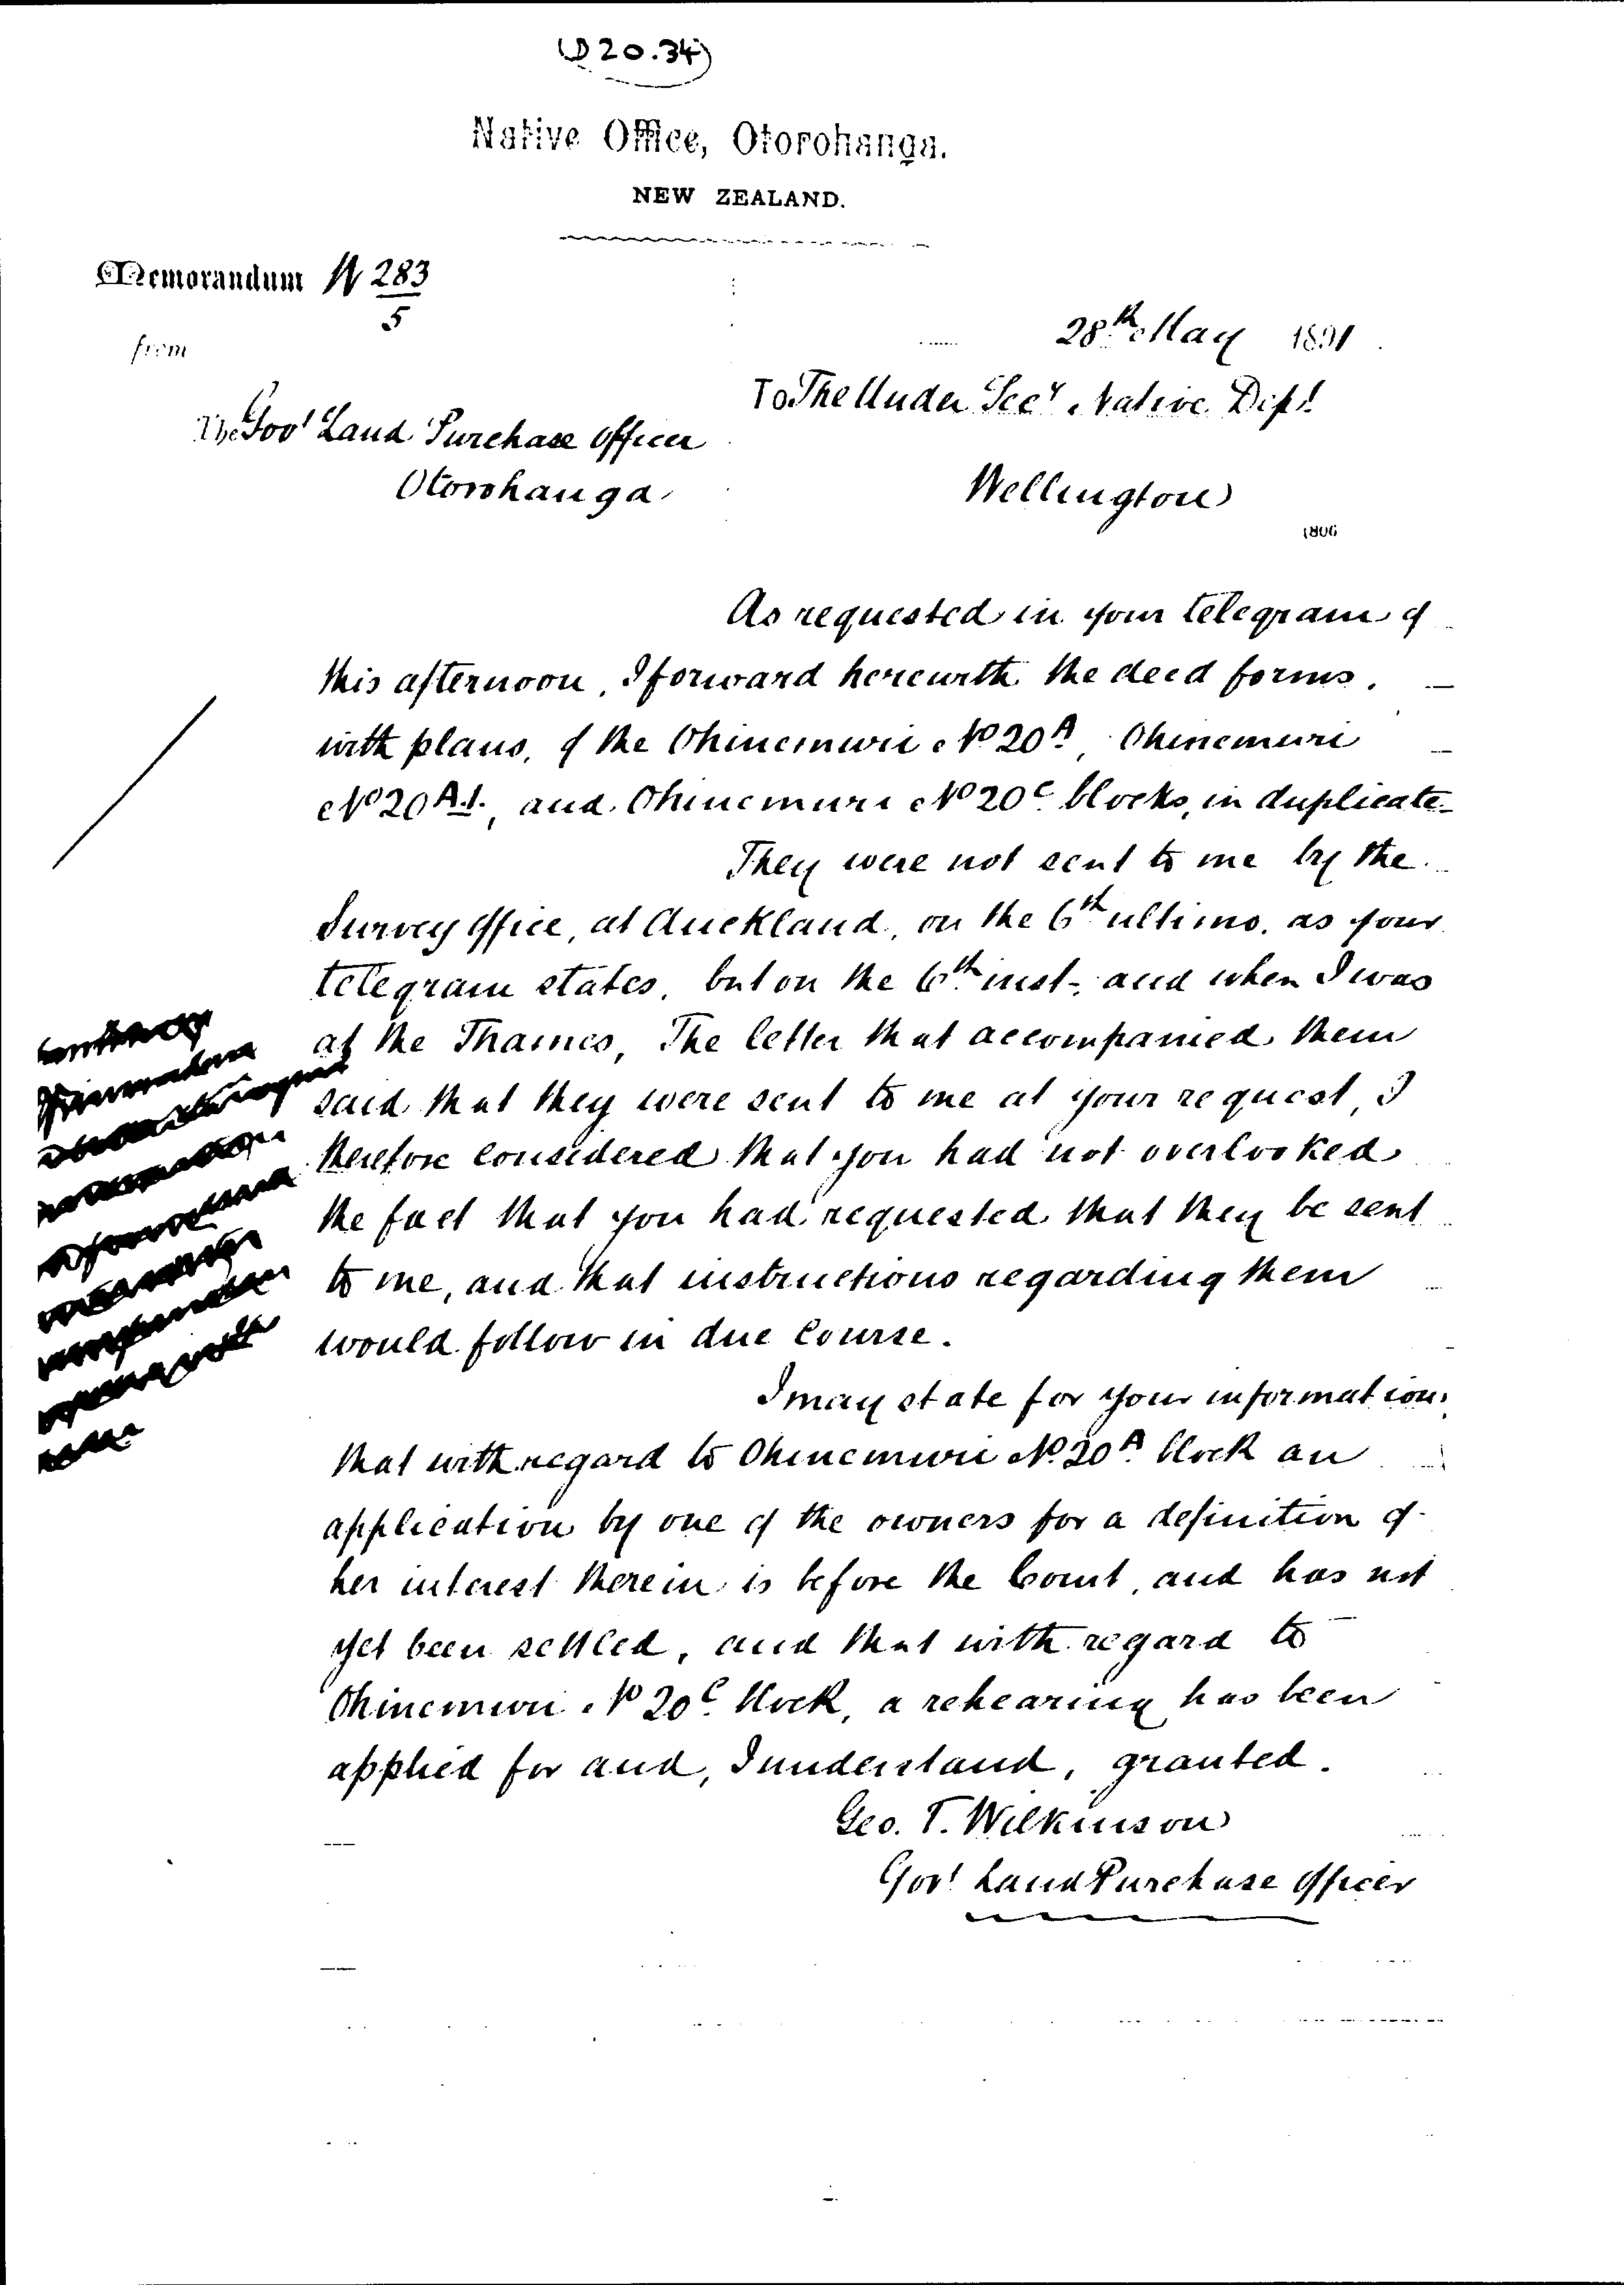 (D 20.34)
Native Office, Otorohanga.
NEW ZEALAND.
Memorandum N 283/5
28th May 1891
from
To The Under Secy Native Dept
The Govt Land Purchase Officer
Otorohanga
Wellington
As requested in your telegram of
this afternoon, I forward herewith the deed forms,
with plans, of the Ohinemuri No 20A, Ohinemuri
No 20A.1., and Ohinemuri No 20C blocks, in duplicate
They were not sent to me by the
Survey Office, at Auckland, on the 6th ultimo, as your
telegram states, but on the 6th inst- and when I was
at the Thames, The letter that accompanied them
said that they were sent to me at your request, I
therefore considered that you had not overlooked
the fact that you had requested that they be sent
to me, and that instructions regarding them
would follow in due course.
I may state for your information
that with regard to Ohinemuri No. 20A block an
application by one of the owners for a definition of
her interest therein is before the Court, and has not
yet been settled, and that with regard to
Ohinemuri No 20C block, a rehearing has been
applied for and, I understand, granted.
Geo. T. Wilkinson
Govt Land Purchase Officer